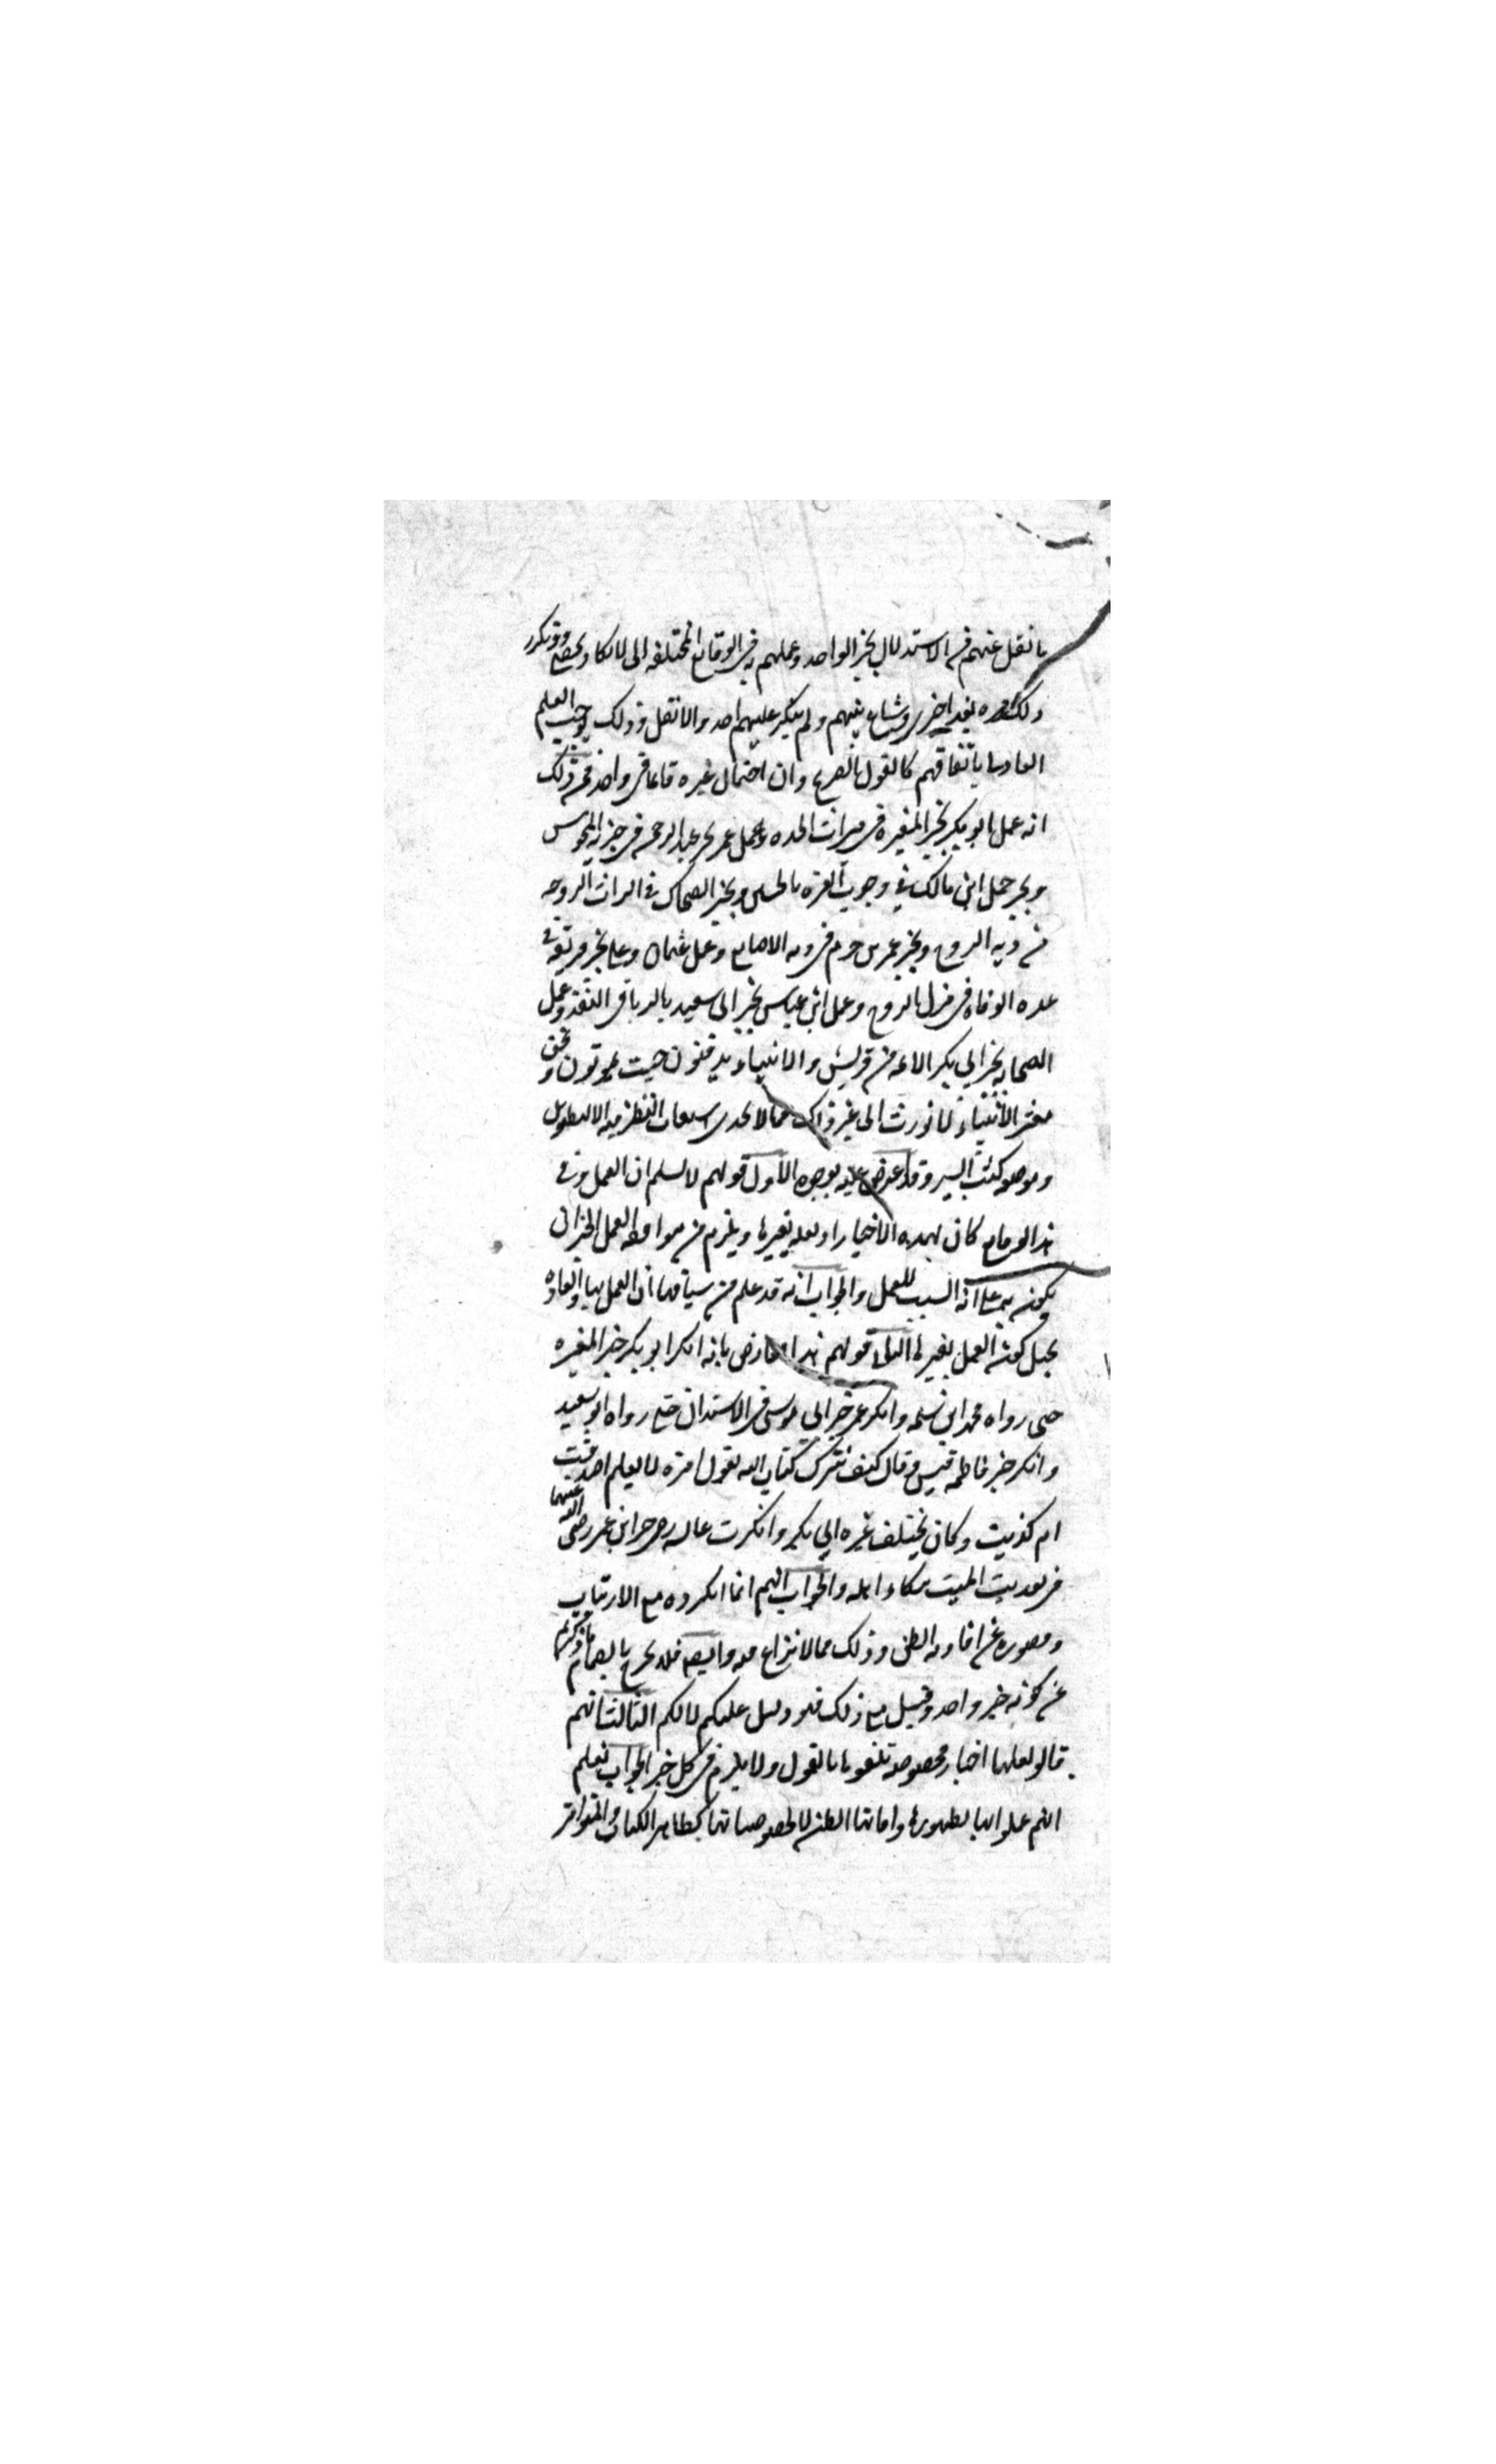 ما نقل عنهم في الاستدلال بخبر الواحد وعملهم به في الوقايع المختلفة التي لا تكاد تحصى وقد تكرر
ذلك مرة بعد اخرى وشاع بينهم ولم ينكر عليهم احد والا نقل وذلك يوجب العلم
العادي باتفاقهم كالقول الصريح وان احتمال غيره قائما في واحد فمن ذلك
انه عمل ابو بكر بخبر المغيرة في ميراث الجدة وعمل عمر بخبر عبد الرحمن في جزية المجوس
وبخبر حمل ابن مالك في وجوب الغرة بالجنين وبخبر الضحاك في ايراث الزوجة
من دية الزوج وبخبر عمرو بن حزم في دية الاصابع وعمل عثمان وعلي بخبر فريعة في
عدة الوفاة في منزل الزوج وعمل ابن عباس بخبر ابي سعيد بالربا في النقد وعمل
الصحابة بخبر ابي بكر الائمة من قريش والانبياء يدفنون حيث يموتون ونحن
معشر الانبياء لا نورث الى غير ذلك مما لا يجدي استيعاب النظر فيه الا التطويل
وموضعه كتب السير وقد اعترض عليه بوجوه الاول قولهم لا نسلم ان العمل في
هذه الوقايع كان بهذه الاخبار اذ لعله بغيرها ويلزم من موافقة العمل الخبر ان
يكون به على انه السبب للعمل والجواب انه قد علم من سياقها ان العمل بها والعادة
تحيل كون العمل بغيرها الثاني قولهم هذا معارض بانه انكر ابو بكر خبر المغيرة
حتى رواه محمد ابن مسلمة وانكر عمر خبر ابي موسى في الاستيذان حتى رواه ابو سعيد
وانكر خبر فاطمة قيس وقال كيف نترك كتاب الله بقول امرة لا يعلم اصدقت
ام كذبت وكان يحلف غيره ابي بكر وانكرت عائشة خبر ابن عمر رضي الله عنهما
في تعذيب الميت ببكاء اهله والجواب انهم انما انكروه مع الارتياب
وقصوره عن افادة الظن وذلك مما لا نزاع فيه وايضا فلا يخرج بانضمام ما ذكرتم
عن كونه خبر واحد وقبل مع ذلك فهو دليل عليكم لا لكم الثالث انهم
قالوا لعلها اخبار مخصوصة تلقوها بالقبول ولا يلزم في كل خبر الجواب نعلم
انهم عملوا بها لظهورها وافادتها الظن لا لخصوصياتها كظاهر الكتاب والمتواتر